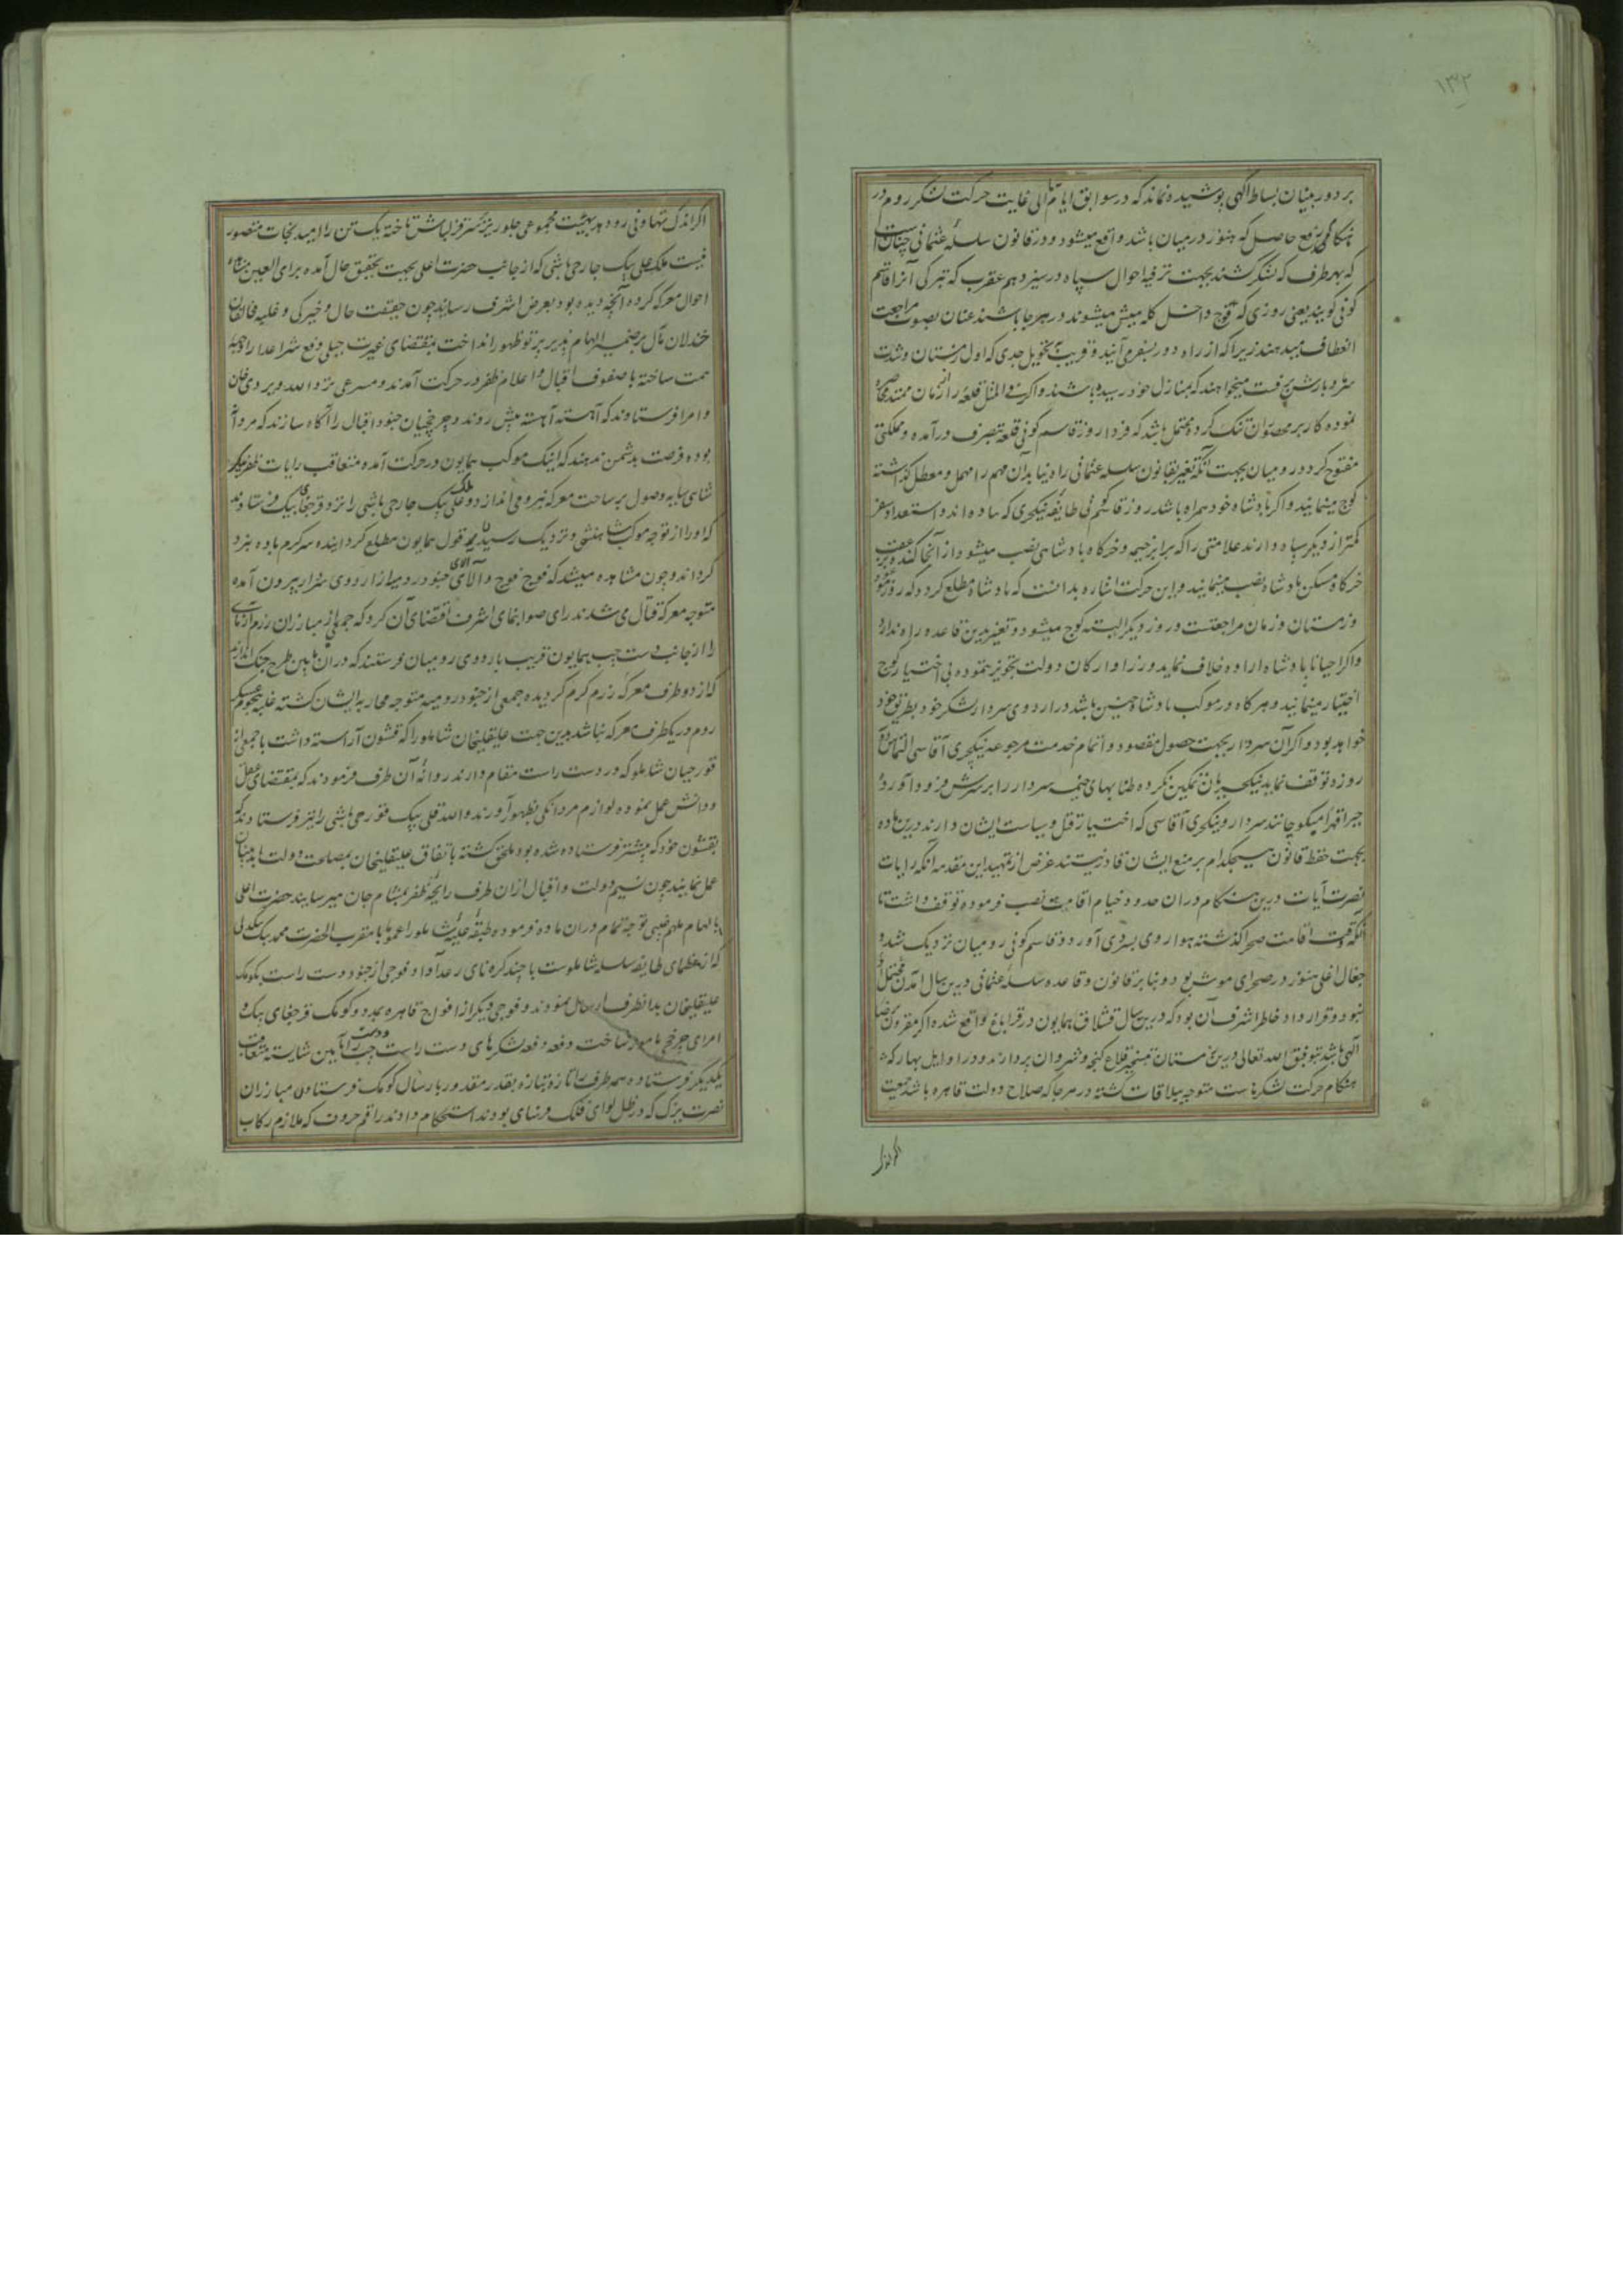 ۱۳۲
بر دوربینان بساط آگهی پوشیده نماند که در سوابق ایام تا الی غایت حرکت لشکر روم در
هنگامی رفع حاصل که هنوز در میان باشد واقع میشود و در قانون سلسله عثمانی چنان است
که بهر طرف که لشکر کشند بجهت ترفیه احوال سپاه در سیزدهم عقرب که بترکی آنرا قاسم
کونی گویند یعنی روزی که قوچ داخل گله میش میشوند در هر جا باشند عنان بصوب مراجعت
انعطاف میدهند زیرا که از راه دور بسفر می آیند و قریب بتحویل جدی که اول زمستان و شدت
سرما و بارش برفست میخواهند که بمنازل خود رسیده باشند و اگر فی المثل قلعه را زمان ممتد محاصره
نموده کار بر محصوران تنک کرده محتمل باشد که فردا روز قاسم کونی قلعه بتصرف درآمده مملکتی
مفتوح گردد رومیان بجهت آنکه تغییر بقانون سلسله عثمانی راه نیابد آن مهم را مهمل و معطل گذاشته
کوچ مینمایند و اگر پادشاه خود همراه باشد روز قاسم کونی طایفه ینکچری که پیاده اند و استعداد سفر
کمتر از دیگر سپاه دارند علامتی را که برابر خیمه و خرگاه پادشاهی نصب میشود از آنجا کنده در عقب
خرگاه مسکن پادشاه نصب مینمایند و این حرکت اشاره بدانست که پادشاه مطلع گردد که روز
و زمستان و زمان مراجعتست و روز دیگر البته کوچ میشود و تغییر بدین قاعده راه ندارد
و اگر احیانا پادشاه اراده خلاف نماید وزرا و ارکان دولت تجویز ننموده بی اختیار کوچ
اختیار مینمایند و هر گاه در موکب پادشاه چنین باشد در اردوی سردار لشکر خود بطریق
خواهد بود و اگر آن سردار بجهت حصول مقصود و اتمام خدمت مرجوعه از ینکچری آقاسی التماس
روزه توقف نماید ینکچریان تمکین نکرده طنابهای خیمه سردار را بر سرش فرود آورده
جبرا قهرا میکوچانند سردار و ینکچری آقاسی که اختیار قتل و سیاست ایشان دارند درین ماده
بجهت حفظ قانون هیچکدام بر منع ایشان قادر نیستند غرض از تمهید این مقدمه آنکه رایات
نصرت آیات درین هنگام در آن حدود خیام اقامت نصب فرموده توقف داشت تا
آنکه وقت اقامت صحرا گذشته هوا روی بسردی آورد و قاسم کونی رومیان نزدیک شد و
جغال اغلی هنوز در صحرای موش بود و بنابر قانون و قاعده سلسله عثمانی درین سال آمدن محتمل
نبود و قرارداد خاطر اشرف آن بود که درین سال قشلاق همایون در قراباغ واقع شده اگر مقرون برضای
الهی باشد بتوفیق الله تعالی درین زمستان بتسخیر قلاع گنجه و شروان پردازند و در اوایل بهار که
هنگام حرکت لشکرهاست متوجه ملاقات گشته در هر جا که صلاح دولت قاهره باشد جمعیت
اگر اندک تهاونی رود هیئت مجموعی جلوریز بر سر قزلباش تاخته یک تن را امید نجات متصور
نیست ملک علی بیک جارچی باشی که از جانب حضرت اعلی بجهت تحقیق حال آمده برای العین مشاهده
احوال معرکه کرده آنچه دیده بود بعرض اشرف رسانید چون حقیقت حال و خیرگی و غلبه مخالفان
خذلان مآل بر ضمیر الهام پذیر پرتو ظهور انداخت بمقتضای غیرت جبلی دفع شر اعدا را وجهه
همت ساخته با صفوف اقبال و اعلام ظفر در حرکت آمدند و مسرعی نزد الله ویردی خان
و امرا فرستادند که آهسته آهسته پیش روند و چرخچیان جنود اقبال را آگاه سازند که مردانه
بوده فرصت بدشمن ندهند که اینک موکب همایون در حرکت آمده متعاقب رایات ظفر پیکر
شاهی سایه وصول بر ساحت معرکه نبرد می اندازد و ملک علی بیک جارچی باشی را نزد قرجغای بیک فرستادند
که او را از توجه موکب شاهنشهی و نزدیک رسیدن قول همایون مطلع گردانیده سرگرم باده نبرد
گرداند و چون مشاهده میشد که فوج فوج و آلای آلای جنود رومیه از اردوی سردار بیرون آمده
متوجه معرکه قتال می شدند رای صوابنمای اشرف اقتضای آن کرد که جمعی از مبارزان رزم آزمای
را از جانب دست چپ همایون قریب باردوی رومیان فرستند که در آن مابین طرح جنگ اندازند
که از دو طرف معرکه رزم گرم گردیده جمعی از جنود رومیه متوجه محاربه ایشان گشته غلبه هجوم عسکر
روم در یکطرف معرکه نباشد بدین جهت علیقلیخان شاملو را که قشون آراسته داشت با جمعی از
قورچیان شاملو که در دست راست مقام دارند روانه آن طرف فرمودند که بمقتضای عقل
و دانش عمل نموده لوازم مردانگی بظهور آورند و الله قلی بیک قورچی باشی را نیز فرستادند که
بقشون خود که پیشتر فرستاده شده بود ملحق گشته باتفاق علیقلیخان بمصلحت دولت
عمل نمایند چون نسیم دولت و اقبال از آن طرف رایحه ظفر بمشام جان میرسانید حضرت اعلی
بالهام ملهم غیبی توجه تمام در آن ماده فرموده طبقه علیه شاملو را عموما با مقرب الحضرت محمد بیک بیکدلی
که از عظمای طایفه سلسله شاملوست با چند کره نای رعد آوا و فوجی از جنود دست راست بکومک
علیقلیخان بدانطرف ارسال نمودند و فوجی دیگر از افواج قاهره بمدد و کومک قرجغای بیک و
امرای چرخچی مامور ساخت دفعه دفعه لشکرهای دست راست و دست چپ را بآیین شایسته متعاقب
یکدیگر فرستاده هر طرف را تازه بتازه بقدر مقدور بارسال کومک و فرستادن مبارزان
نصرت یزک که در ظل لوای فلک فرسای بودند استحکام دادند راقم حروف که ملازم رکاب